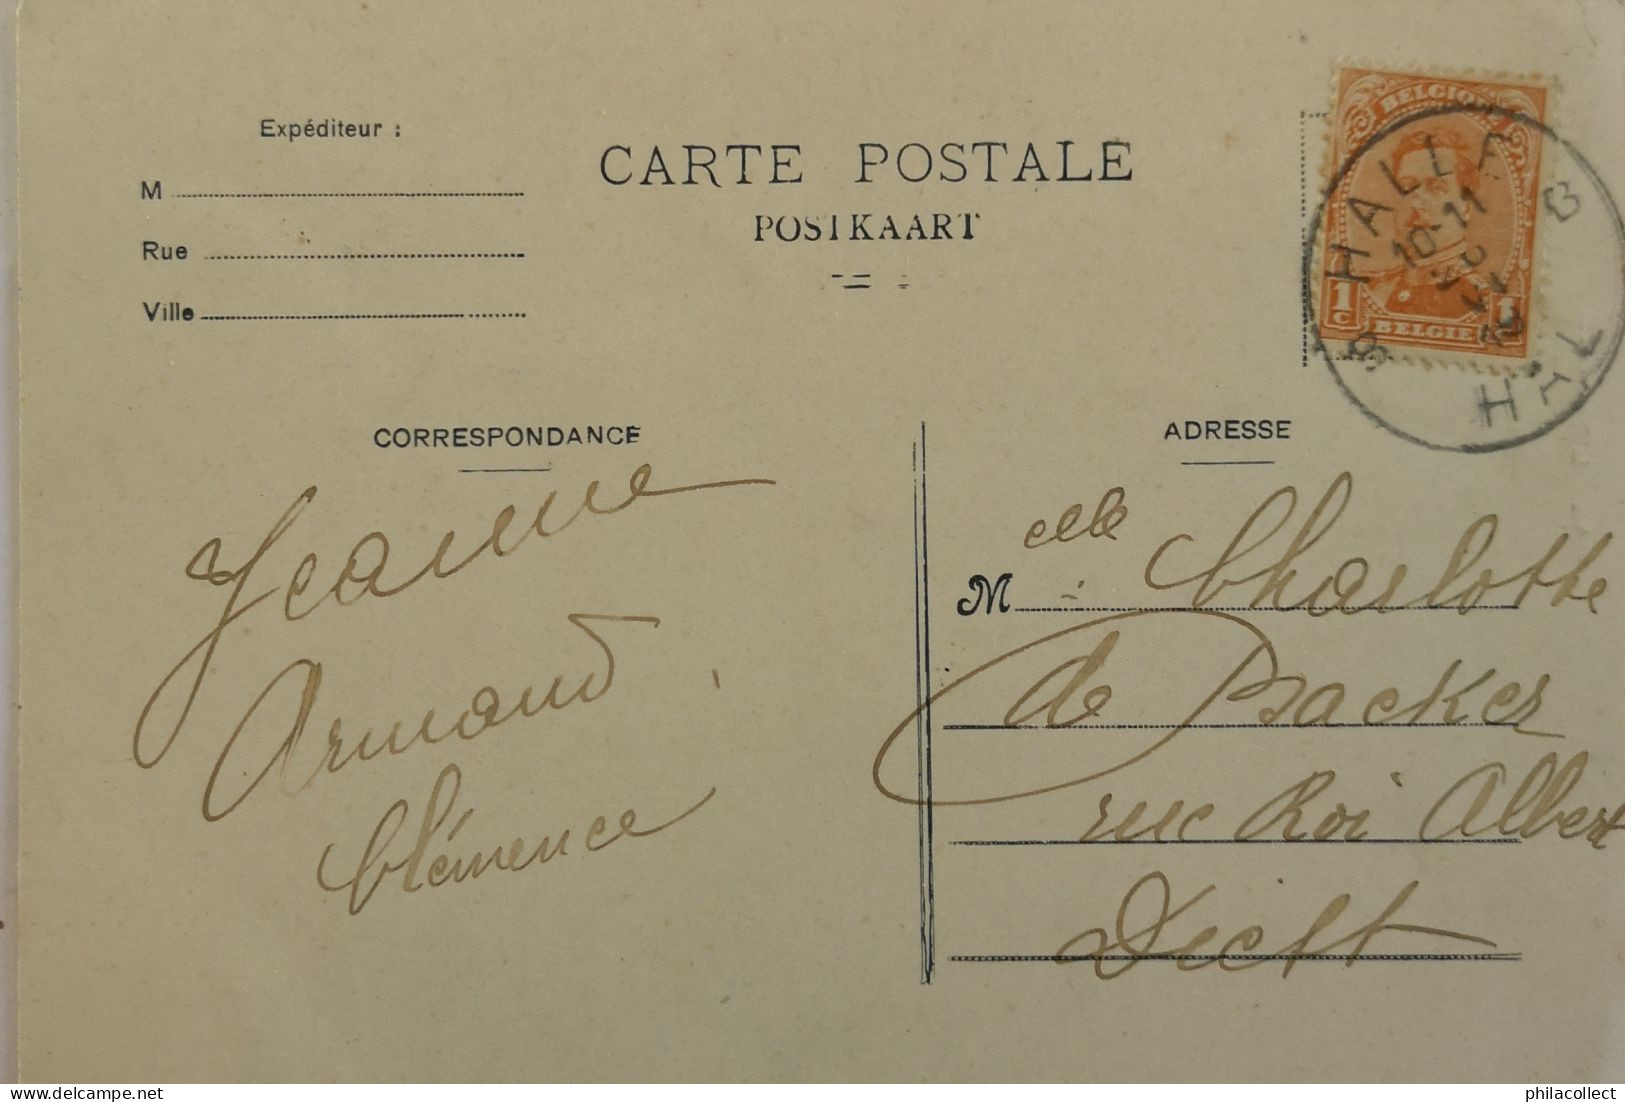 Expéditeur :
M
Rue
Ville
CARTE POSTALE
POSTKAART
BELGIQUE
1c 1c
BELGIE
HALLE
10-11
HAL
B
CORRESPONDANCE
Jeanne
Armand
Clémence
ADRESSE
Melle Charlotte
de Backer
rue Roi Albert
philacollect